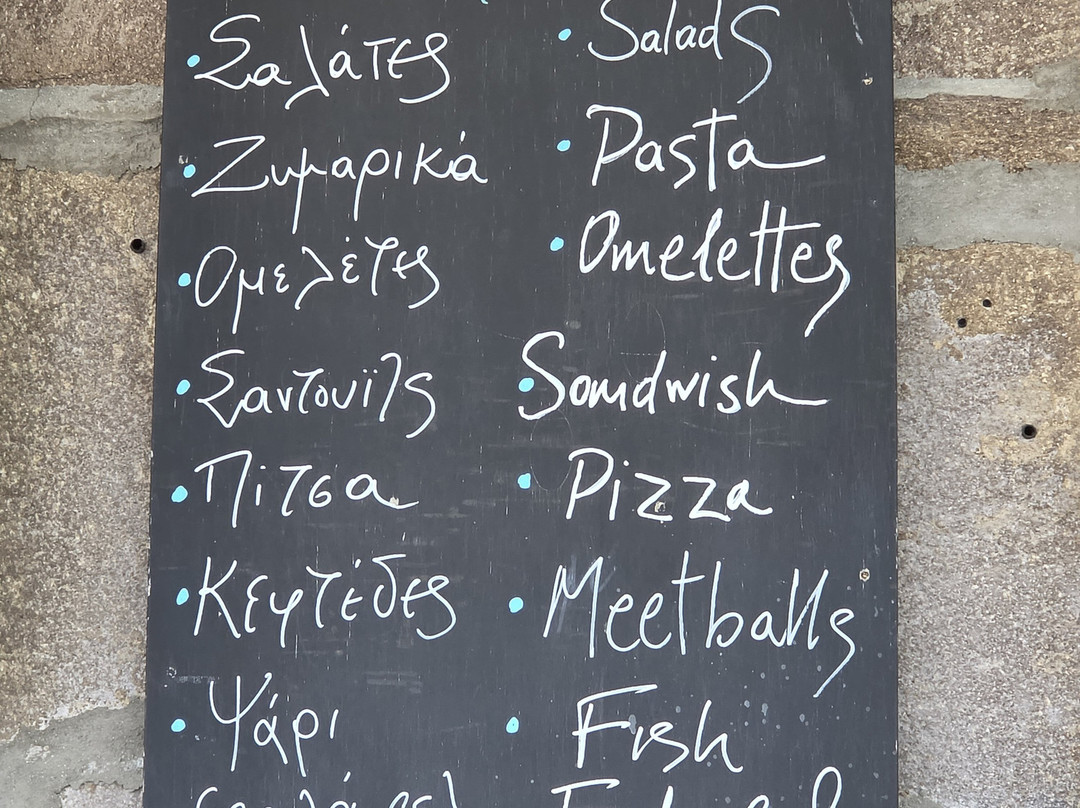 Σαλάτες Salads
Ζυμαρικά Pasta
Ομελέτες Omelettes
Σαντουϊτς Sandwish
Πίτσα Pizza
Κεφτέδες Meetballs
Ψάρι Fish